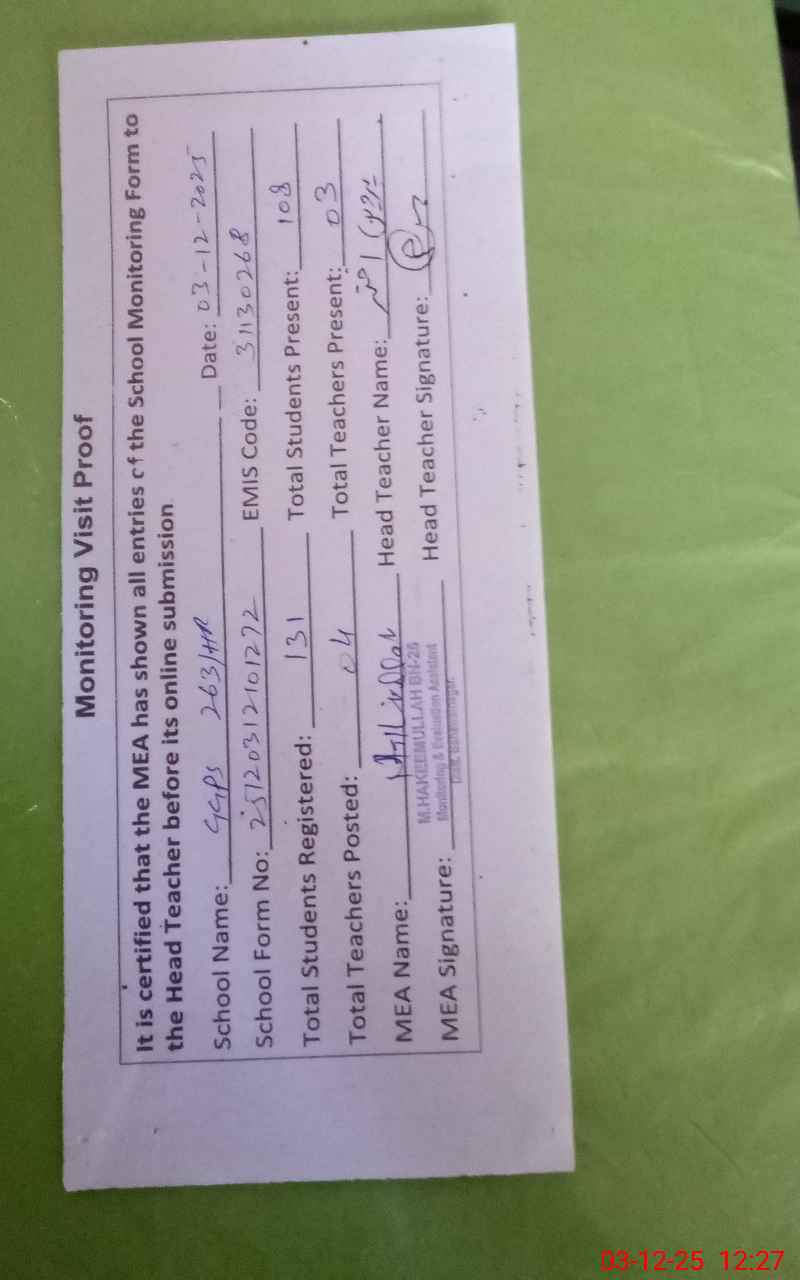 Monitoring Visit Proof
It is certified that the MEA has shown all entries of the School Monitoring Form to
the Head Teacher before its online submission
School Name: GGPS 263/HR Date: 03-12-2025
School Form No: 25120312101272 EMIS Code: 31130268
Total Students Registered: 131 Total Students Present: 108
Total Teachers Posted: 04 Total Teachers Present: 03
MEA Name: Head Teacher Name:
M.HAKEEMULLAH BN-26
Monitoring & Evaluation Assistant
Distt. Bahawalnagar
MEA Signature: Head Teacher Signature:
03-12-25 12:27